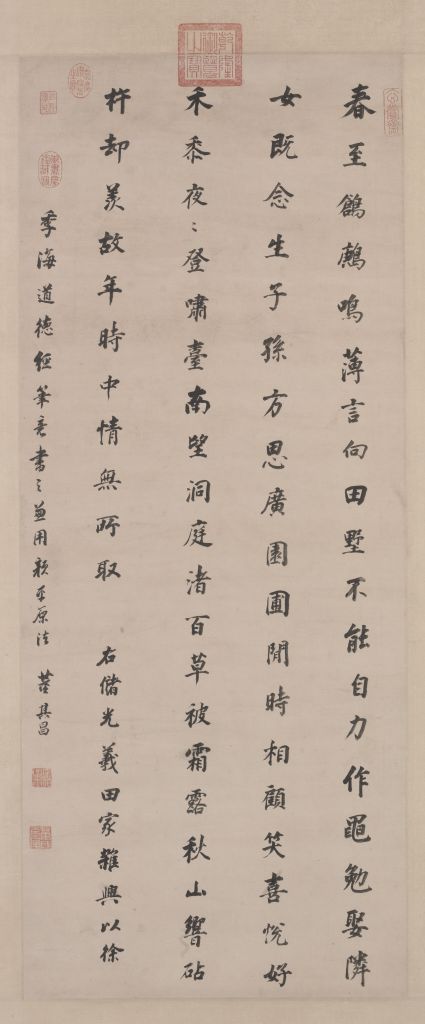 乾隆御覽之寶
春至鶬鶊鳴薄言向田墅不能自力作黽勉娶隣
女既念生子孫方思廣園圃閒時相顧笑喜悅好
禾黍夜〻登嘯臺南望洞庭渚百草被霜露秋山響砧
杵却羨故年時中情無所取 右儲光羲田家雜興以徐
季海道德經筆意書之兼用顏平原法 董其昌